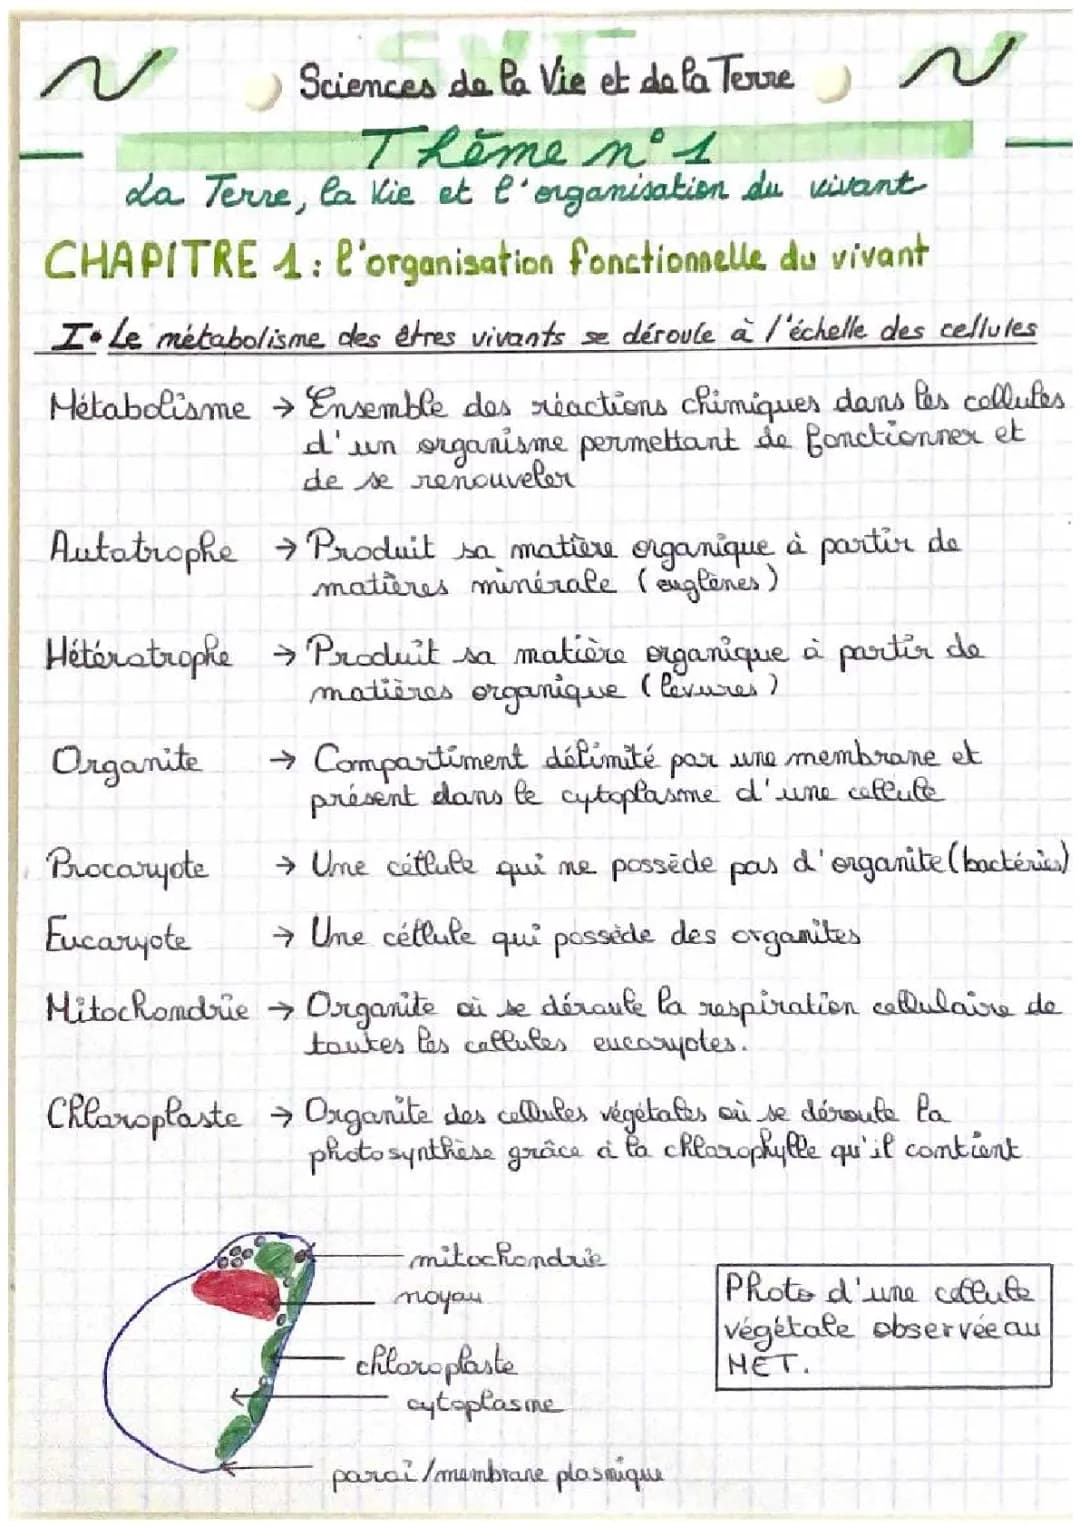 SVT
Sciences de la Vie et de la Terre
Thème n°1
La Terre, la Vie et l'organisation du vivant
CHAPITRE 1 : l'organisation fonctionnelle du vivant
I• Le métabolisme des êtres vivants se déroule à l'échelle des cellules
Métabolisme → Ensemble des réactions chimiques dans les cellules
d'un organisme permettant de fonctionner et
de se renouveler
Autotrophe → Produit sa matière organique à partir de
matières minérale (euglènes)
Hétérotrophe → Produit sa matière organique à partir de
matières organique (levures)
Organite → Compartiment délimité par une membrane et
présent dans le cytoplasme d'une cellule
Procaryote → Une céllule qui ne possède pas d'organite (bactéries)
Eucaryote → Une céllule qui possède des organites
Mitochondrie → Organite où se déroule la respiration cellulaire de
toutes les cellules eucaryotes.
Chloroplaste → Organite des cellules végétales où se déroule la
photosynthèse grâce à la chlorophylle qu'il contient
mitochondrie
noyau
chloroplaste
cytoplasme
paroi/membrane plasmique
Photo d'une cellule
végétale observée au
MET.